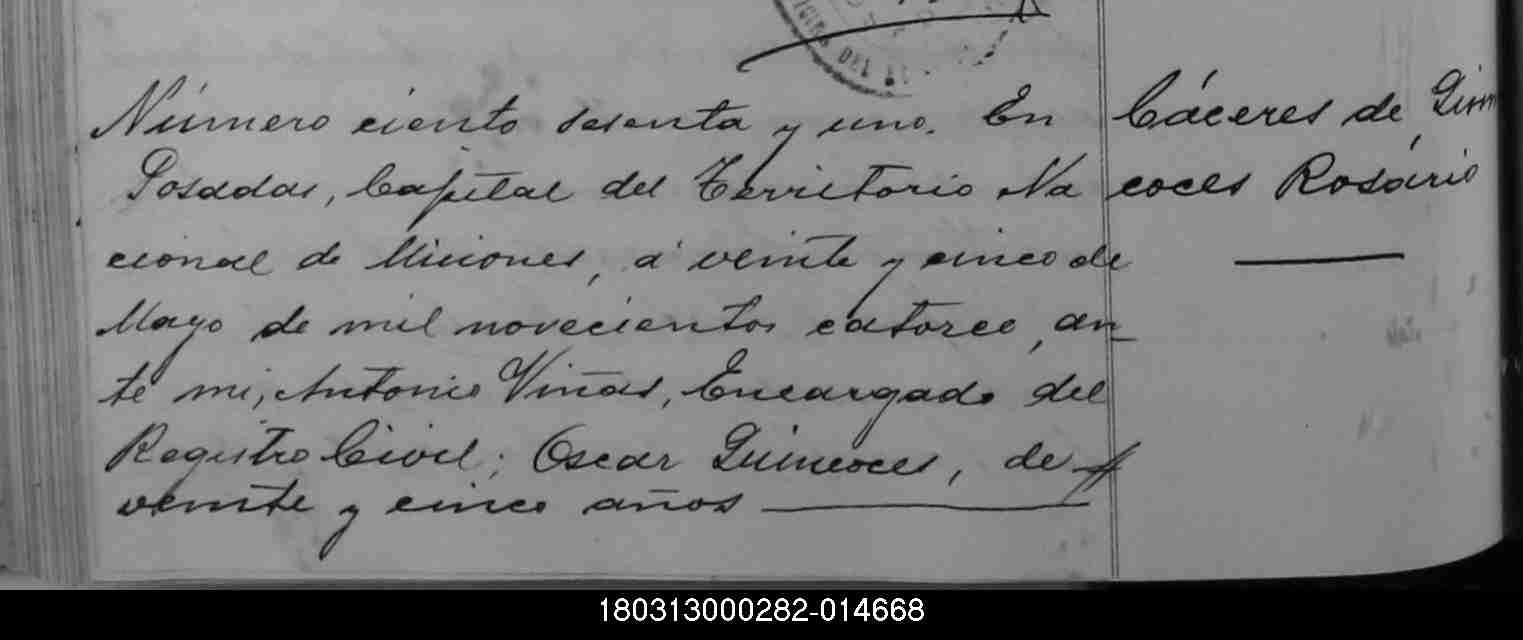 Número ciento sesenta y uno. En
Posadas, Capital del Territorio Na
cional de Misiones, á veinte y cinco de
Mayo de mil novecientos catorce, an
te mi, Antonio Viñas, Encargado del
Registro Civil; Oscar Quincoces, de
veinte y cinco años
Cáceres de
coces Rosário
180313000282-014668